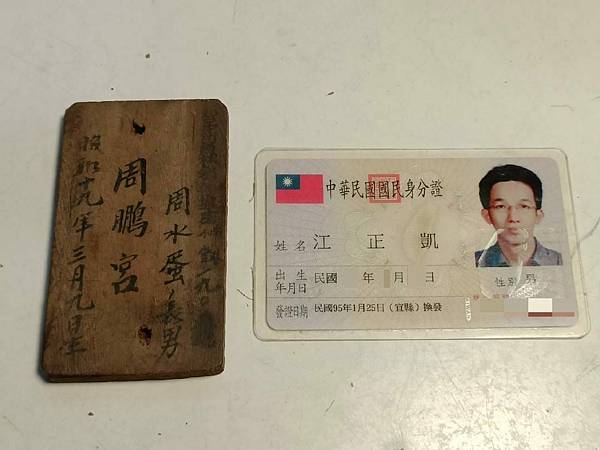 周水蛋長男
周鵬宮
昭和十九年三月九日生
中華民國國民身分證
姓名 江正凱
出生年月日 民國 年 月 日
性別 男
發證日期 民國95年1月25日（宜縣）換發